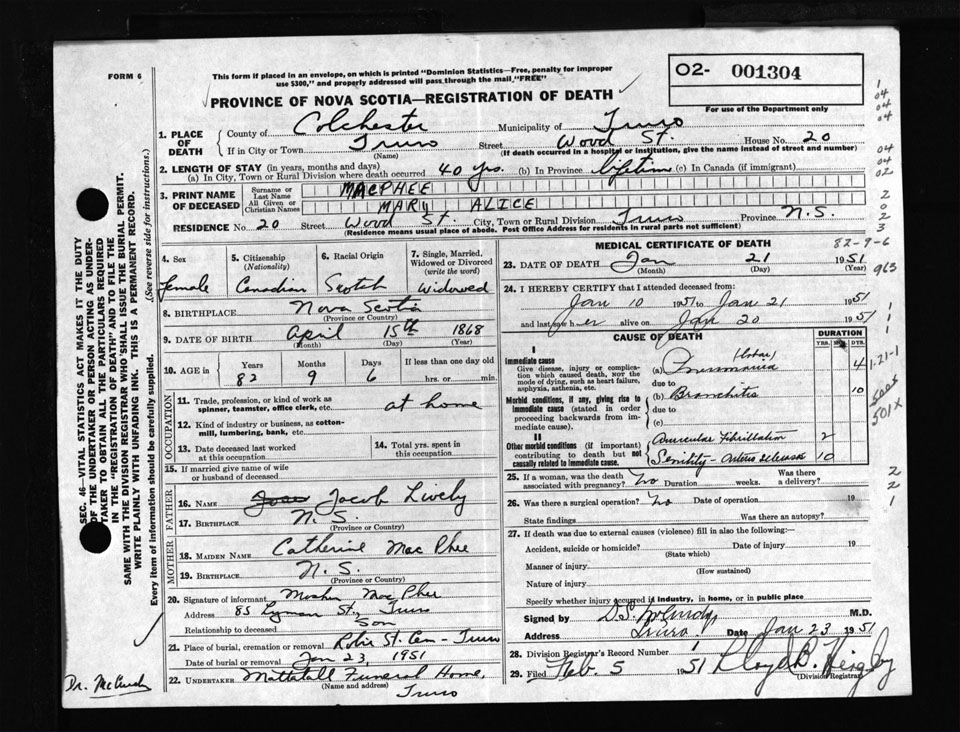 FORM 6
This form if placed in an envelope, on which is printed "Dominion Statistics—Free, penalty for improper
use $300," and properly addressed will pass through the mail "FREE"
O2- 001304
For use of the Department only
PROVINCE OF NOVA SCOTIA—REGISTRATION OF DEATH
1. PLACE OF DEATH
County of Colchester Municipality of Truro
If in City or Town Truro Street Wood St. House No. 20
(Name) (If death occurred in a hospital or institution, give the name instead of street and number)
2. LENGTH OF STAY (in years, months and days)
(a) In City, Town or Rural Division where death occurred 40 yrs. (b) In Province lifetime (c) In Canada (if immigrant)
3. PRINT NAME OF DECEASED
Surname or Last Name MACPHEE
All Given or Christian Names MARY ALICE
RESIDENCE No. 20 Street Wood St. City, Town or Rural Division Truro Province N.S.
(Residence means usual place of abode. Post Office Address for residents in rural parts not sufficient)
4. Sex
female
5. Citizenship
(Nationality)
Canadian
6. Racial Origin
Scotch
7. Single, Married, Widowed or Divorced
(write the word)
Widowed
8. BIRTHPLACE Nova Scotia
(Province or Country)
9. DATE OF BIRTH April 15th 1868
(Month) (Day) (Year)
10. AGE in Years Months Days If less than one day old
82 9 6 hrs. or min.
OCCUPATION
11. Trade, profession, or kind of work as
spinner, teamster, office clerk, etc. at home
12. Kind of industry or business, as cotton-
mill, lumbering, bank, etc.
13. Date deceased last worked
at this occupation
14. Total yrs. spent in
this occupation
15. If married give name of wife
or husband of deceased
FATHER
16. NAME Jacob Lively
17. BIRTHPLACE N. S.
(Province or Country)
MOTHER
18. MAIDEN NAME Catherine Mac Phee
19. BIRTHPLACE N. S.
(Province or Country)
20. Signature of informant Mac Phee
Address 85 Lyman St., Truro
Relationship to deceased Son
21. Place of burial, cremation or removal Robie St. Cem - Truro
Date of burial or removal Jan 23, 1951
22. UNDERTAKER Mattatall Funeral Home,
(Name and address) Truro
MEDICAL CERTIFICATE OF DEATH
82-9-6
23. DATE OF DEATH Jan 21 1951
(Month) (Day) (Year)
24. I HEREBY CERTIFY that I attended deceased from:
Jan 10 1951 to Jan 21 1951
and last saw her alive on Jan 20 1951
CAUSE OF DEATH
DURATION
YRS. MOS. DYS.
I
Immediate cause
Give disease, injury or complica-
tion which caused death, not the
mode of dying, such as heart failure,
asphyxia, asthenia, etc.
(a) Pneumonia (lobar) 4
due to
Morbid conditions, if any, giving rise to
immediate cause (stated in order
proceeding backwards from im-
mediate cause).
(b) Bronchitis 10
due to
(c)
II
Other morbid conditions (if important)
contributing to death but not
causally related to immediate cause.
Auricular Fibrillation 2
Senility - Arterio sclerosis 10
25. If a woman, was the death
associated with pregnancy? No Duration weeks. Was there
a delivery?
26. Was there a surgical operation? No Date of operation 19
State findings Was there an autopsy?
27. If death was due to external causes (violence) fill in also the following:—
Accident, suicide or homicide? Date of injury 19
(State which)
Manner of injury
(How sustained)
Nature of injury
Specify whether injury occurred in industry, in home, or in public place
Signed by D.S. McCurdy M.D.
Address Truro. Date Jan 23 1951
28. Division Registrar's Record Number
29. Filed Feb. 5 1951 Lloyd B.
(Division Registrar)
SEC. 46—VITAL STATISTICS ACT MAKES IT THE DUTY
OF THE UNDERTAKER OR PERSON ACTING AS UNDER-
TAKER TO OBTAIN ALL THE PARTICULARS REQUIRED
IN THE "REGISTRATION OF DEATH" AND TO FILE THE
SAME WITH THE DIVISION REGISTRAR WHO SHALL ISSUE THE BURIAL PERMIT.
WRITE PLAINLY WITH UNFADING INK. THIS IS A PERMANENT RECORD.
Every item of information should be carefully supplied. (See reverse side for instructions.)
Dr. McCurdy
1
04
04
04
04
04
02
2
0
2
3
963
1
1
1
1-21-1
500x
501X
2
2
1